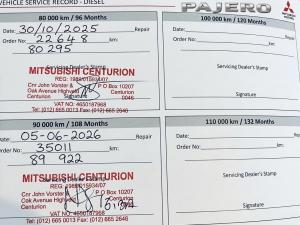 VEHICLE SERVICE RECORD - DIESEL
PAJERO
MITSUBISHI
80 000 km / 96 Months
Date: 30/10/2025 Repair
Order No: 22648
80 295
Servicing Dealer's Stamp
MITSUBISHI CENTURION
Cnr John Vorster & P O Box 10207
Oak Avenue Highveld Centurion
Centurion 0046
Signature
VAT NO: 4650187968
Tel: (012) 665 0013 Fax: (012) 665 2646
100 000 km / 120 Months
Date: Repair
Order No:
Servicing Dealer's Stamp
Signature
90 000 km / 108 Months
Date: 05-06-2026 Repair
Order No: 35011
89 922
Servicing Dealer's Stamp
MITSUBISHI CENTURION
Cnr John Vorster & P O Box 10207
Oak Avenue Highveld Centurion
Centurion
Signature
VAT NO: 4650187968
Tel: (012) 665 0013 Fax: (012) 665 2646
110 000 km / 132 Months
Date: Repair
Order No:
Servicing Dealer's Stamp
Signature